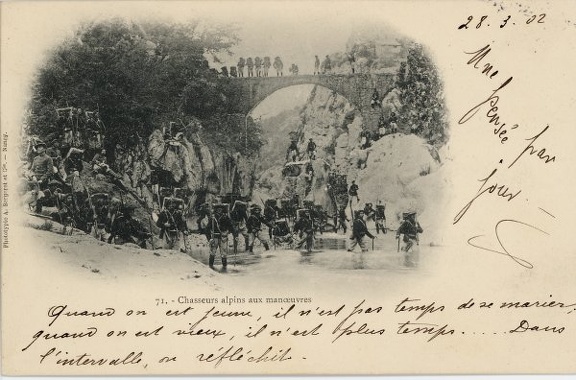 28.3.02
Une
pensée
par
jour.
Phototypie A. Bergeret et Cie. — Nancy.
71. - Chasseurs alpins aux manœuvres
Quand on est jeune, il n'est pas temps de se marier,
quand on est vieux, il n'est plus temps..... Dans
l'intervalle, on réfléchit.